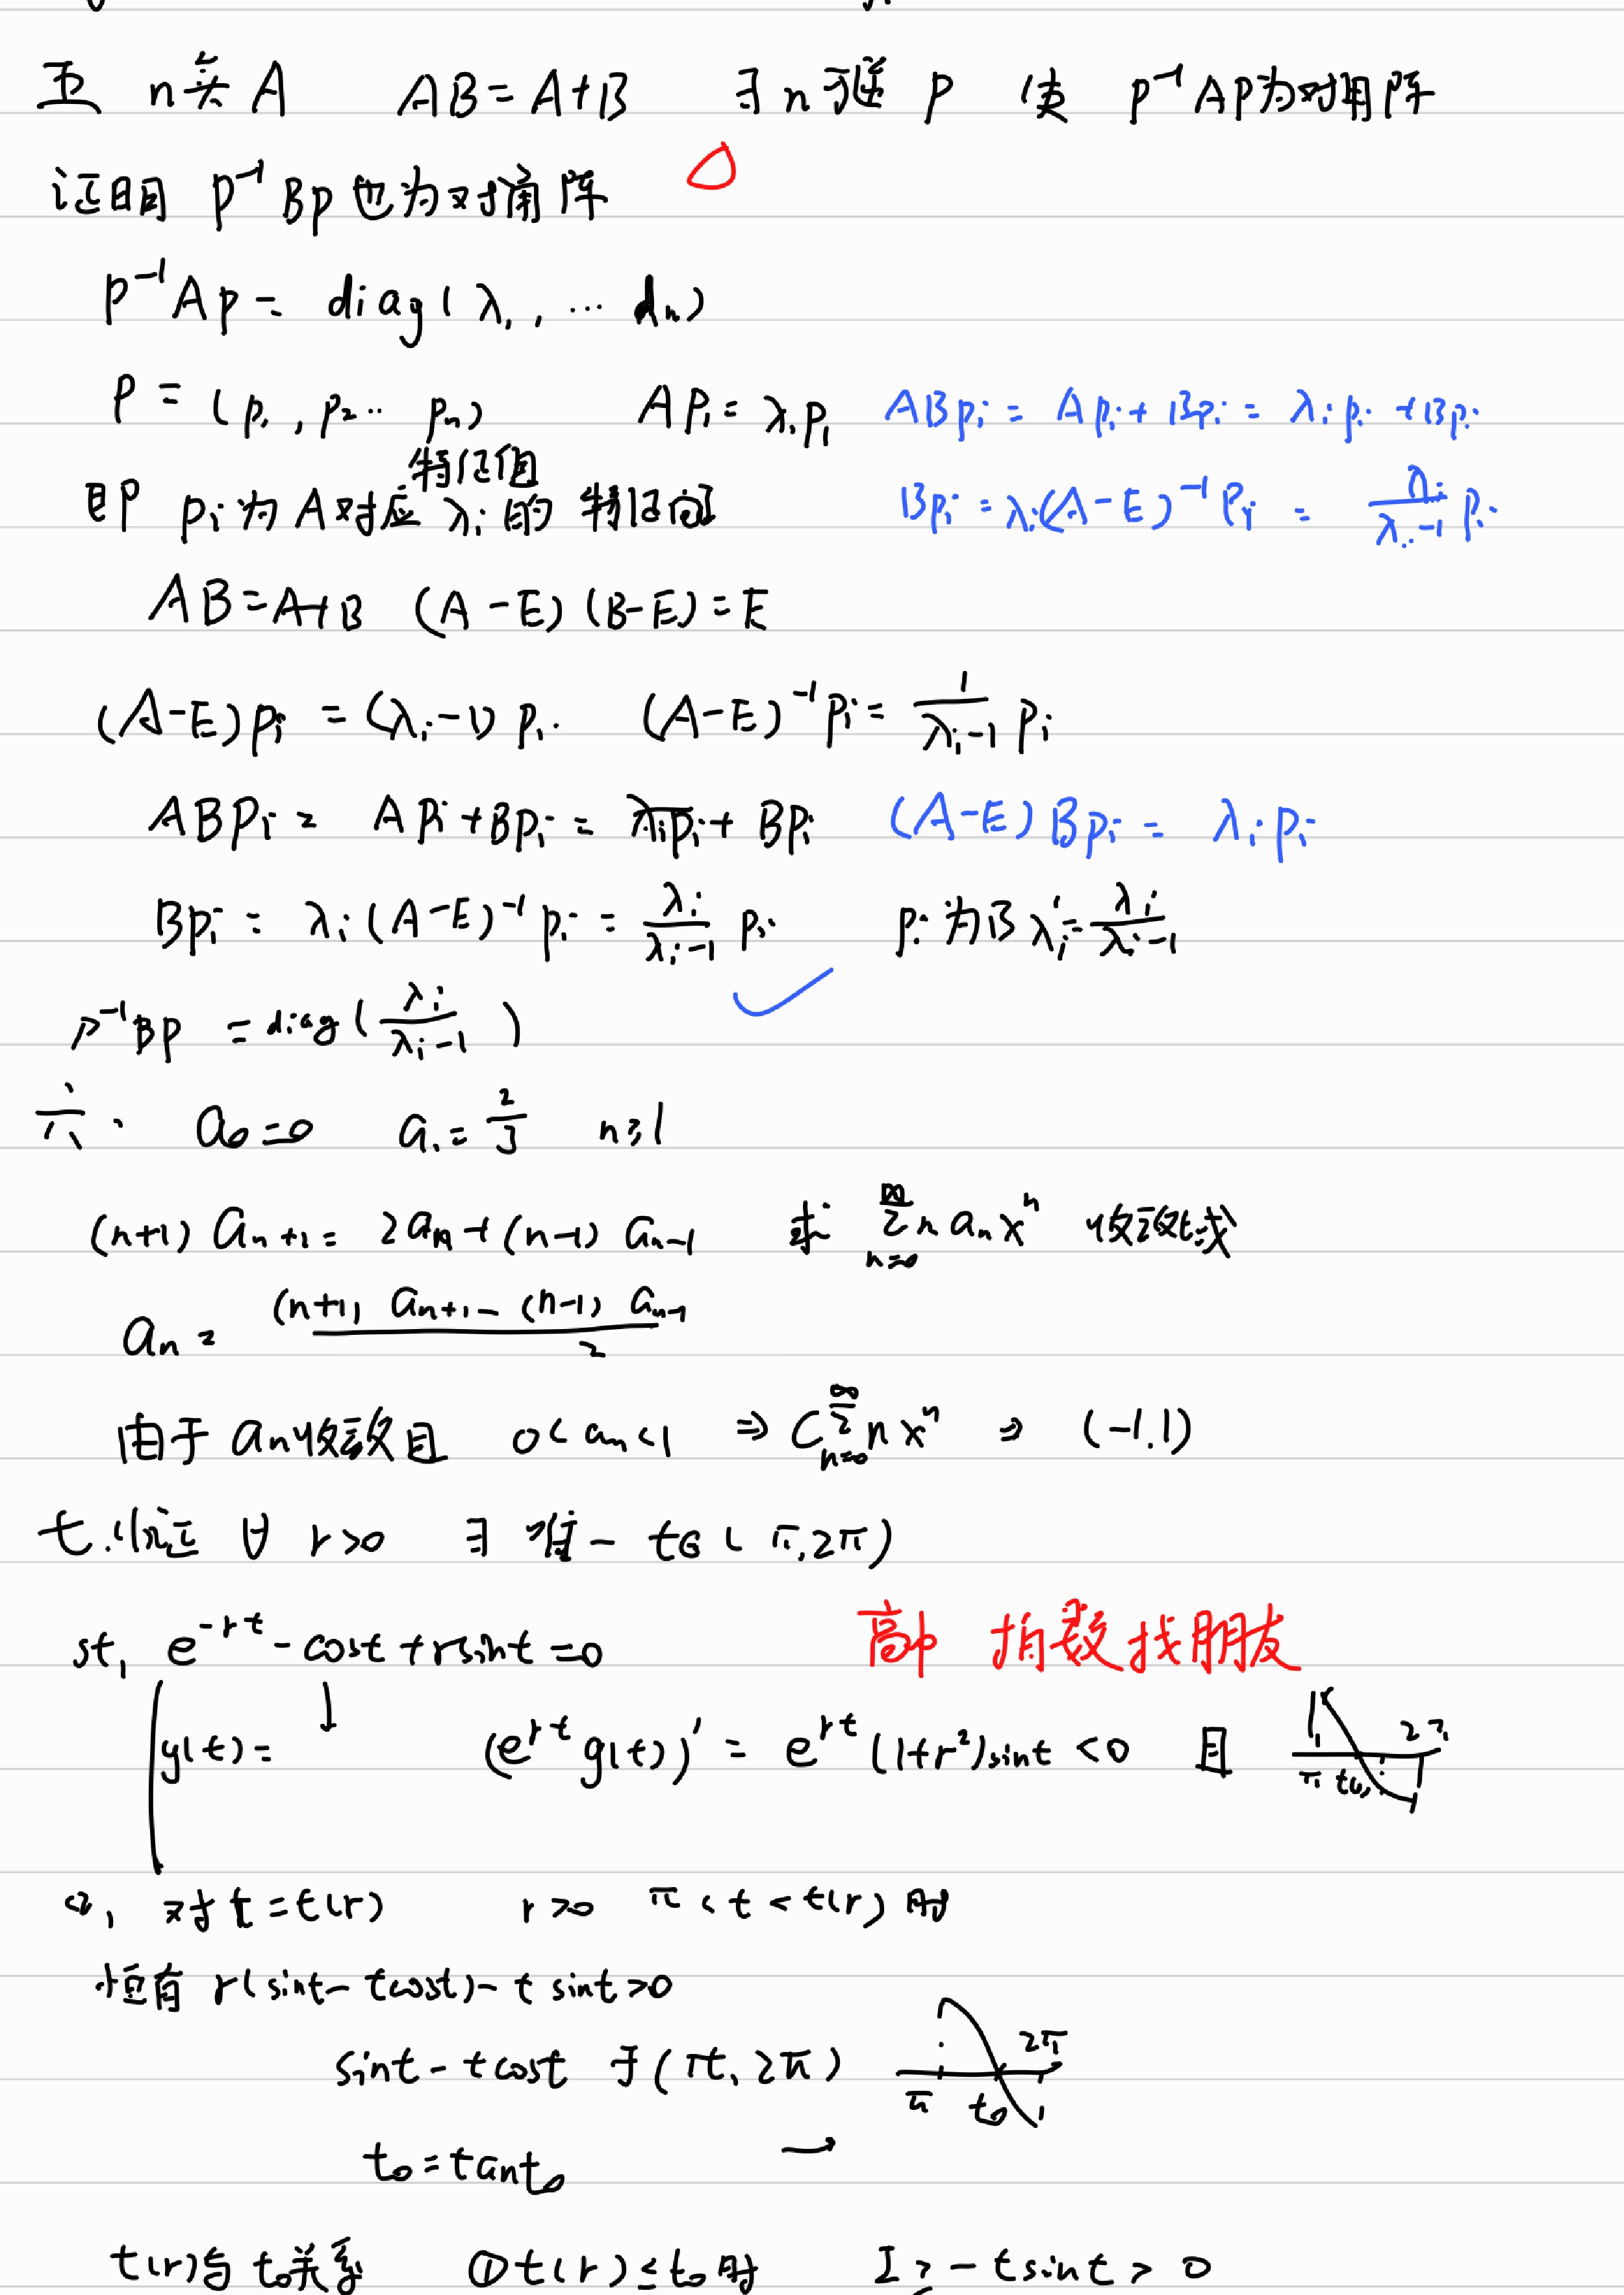 五 n关 A AB=A+B ∃ n可逆 P 使 P⁻¹AP为对角阵
证明 P⁻¹BP也为对角阵
P⁻¹AP = diag(λ₁, … dn)
P = (p₁, p₂… pn) APi = λipi ABpi = Api + Bpi = λipi + Bpi
特征值
即 pi为A对应λi的 特征向 Bpi = λi(A-E)⁻¹Pi = λi/(λi-1) pi
AB=A+B (A-E)(B-E)=E
(A-E)pi = (λi-1)pi (A-E)⁻¹pi = 1/(λi-1) pi
ABPi = APi + Bpi = λipi + BPi (A-E)Bpi = λipi
Bpi = λi(A-E)⁻¹pi = λi/(λi-1) pi pi为B λi' = λi/(λi-1)
P⁻¹BP = diag(λi/(λi-1))
六. a₀=0 a₁=2/3 n≥1
(n+1)an+1 = 2an+(n-1)an-1 求 ∑n=0^∞ n an xⁿ 收敛域
an = ((n+1)an+1-(n-1)an-1)/2
由于an收敛且 0<an<1 ⇒ C∑n=0^∞ n xⁿ ⇒ (-1.1)
七.(1)证 ∀ r>0 ∃ 唯一 t∈(π,2π)
st, e⁻ʳᵗ-cost+rsint=0 高中 指数找朋友
g(t)= ↓ (eʳᵗg(t))' = eʳᵗ(1+r²)sint <0 且 π t₀ 2π
(2) 对t=t(r) r>0 π<t<t(r)时
恒有 r(sint-tcost)-tsint>0
sint-tcost 于(π, 2π) π t₀ 2π
t₀=tant₀ →
t(r)与t₀关系 ①t(r)≤t₀时 I≥-tsint>0